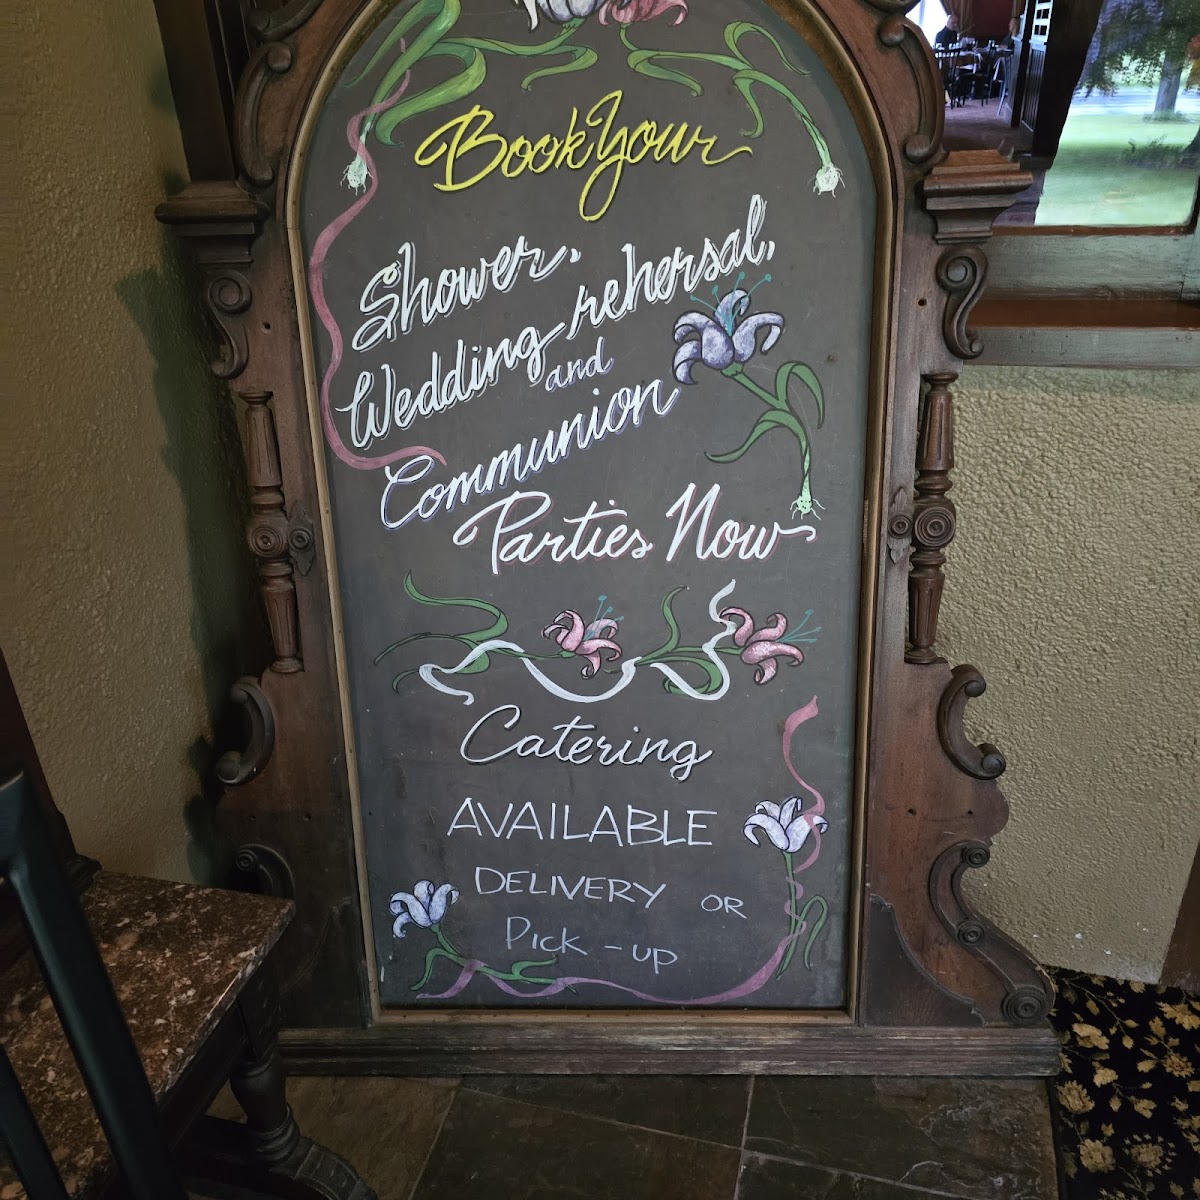 Book Your
Shower,
Wedding rehersal,
and
Communion
Parties Now
Catering
AVAILABLE
DELIVERY OR
PICK-UP